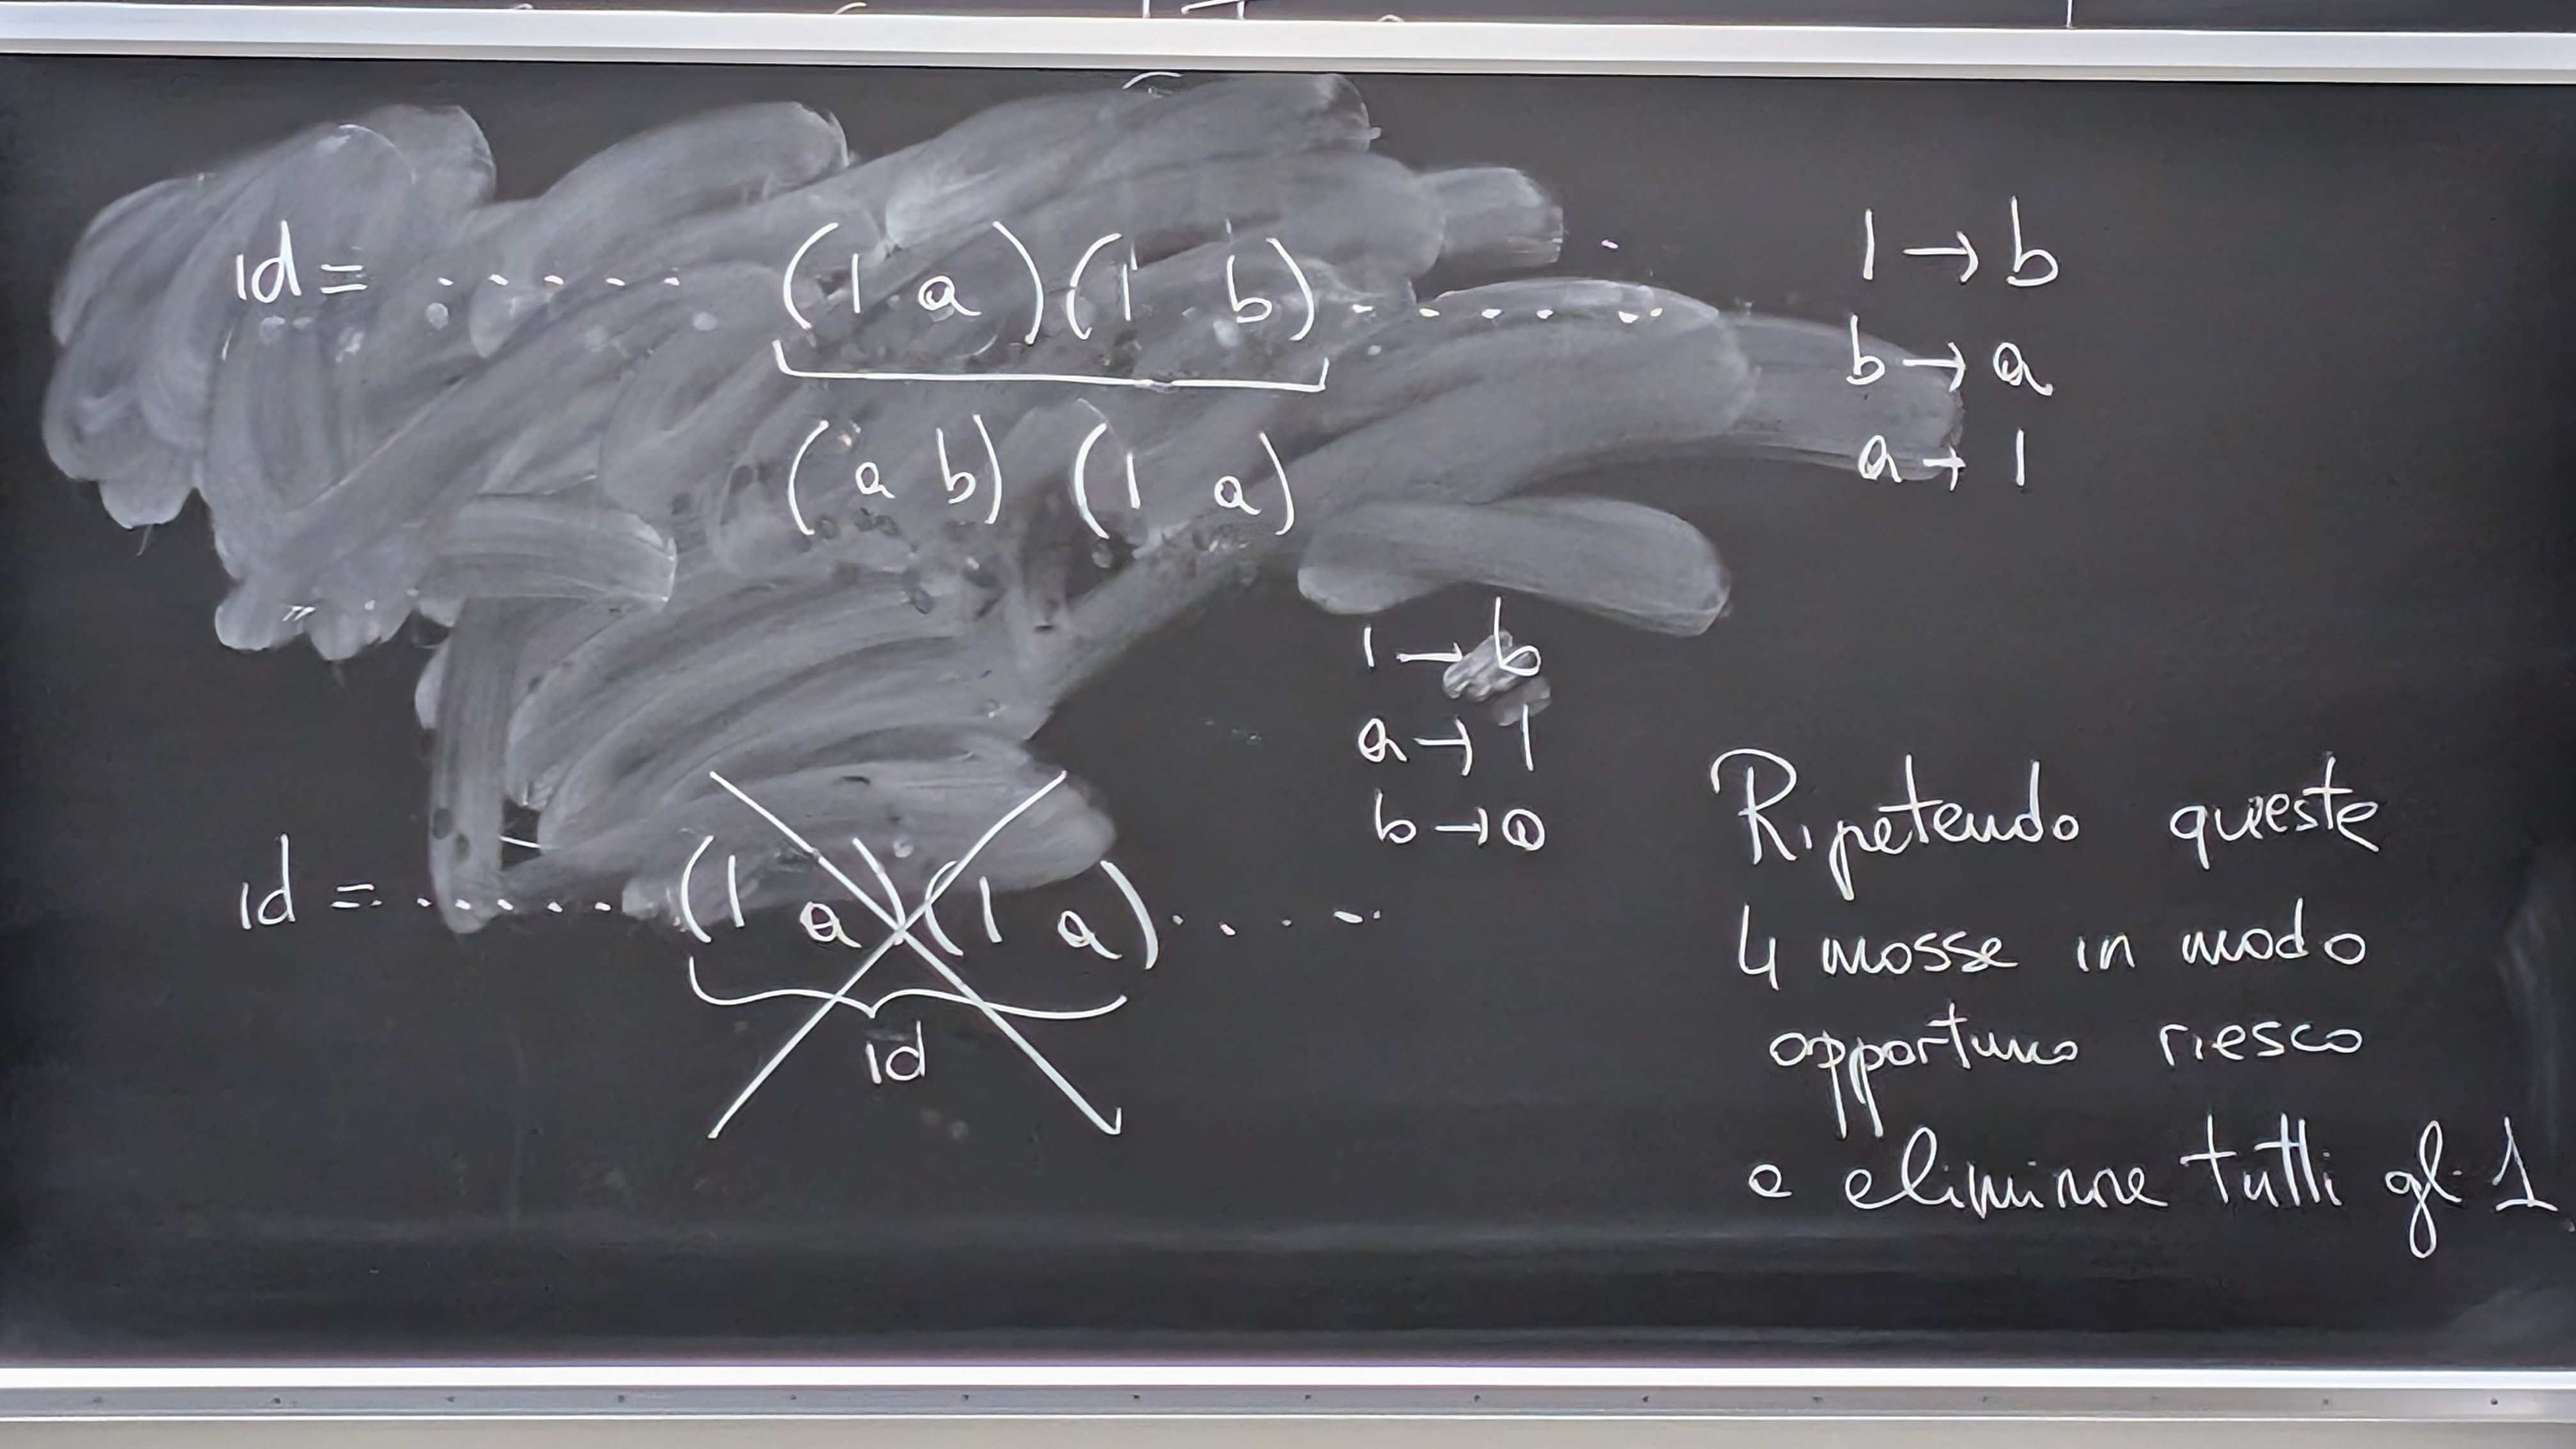 id = ...... (1 a)(1 b) ......
1 → b
b → a
(a b) (1 a)
a → 1
1 → b
a → 1
b → a
id = ...... (1 a)(1 a) ....
id
Ripetendo queste
4 mosse in modo
opportuno riesco
a eliminare tutti gli 1